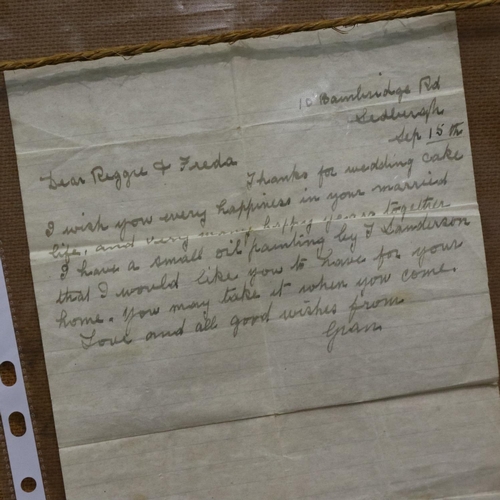 10 Bainbridge Rd
Sedbergh
Sep 15th
Dear Reggie & Freda
Thanks for wedding cake
I wish you every happiness in your married
life, and very many happy years together
I have a small oil painting by F Sanderson
that I would like you to have for your
home. You may take it when you come.
Love and all good wishes from
Gran